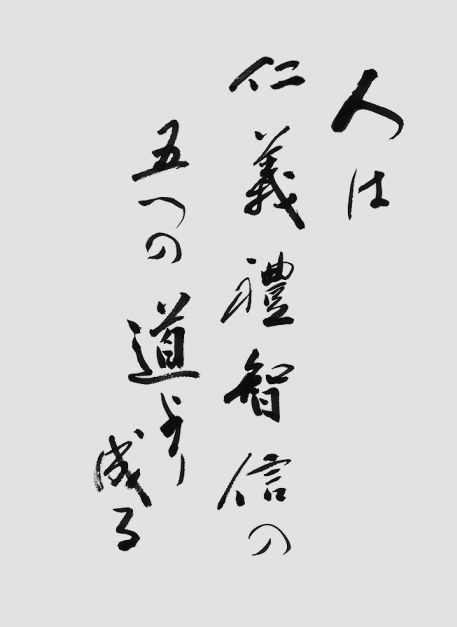 人は
仁義禮智信の
五つの道より
成る